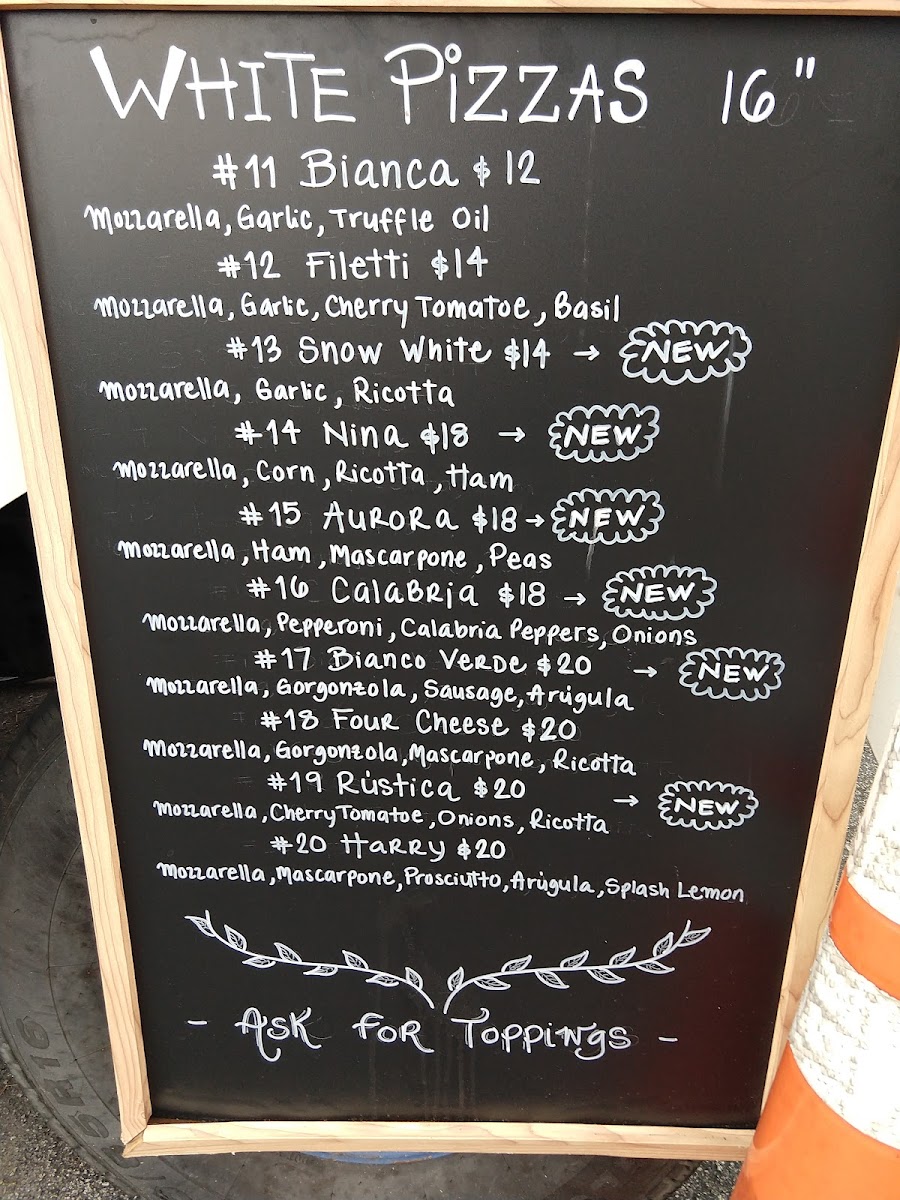 WHITE PIZZAS 16"
#11 Bianca $12
Mozzarella, Garlic, Truffle Oil
#12 Filetti $14
Mozzarella, Garlic, Cherry Tomatoe, Basil
#13 Snow White $14 → NEW
Mozzarella, Garlic, Ricotta
#14 Nina $18 → NEW
Mozzarella, Corn, Ricotta, Ham
#15 AURORA $18 → NEW
Mozzarella, Ham, Mascarpone, Peas
#16 CalaBRia $18 → NEW
Mozzarella, Pepperoni, Calabria Peppers, Onions
#17 Bianco VERDE $20 → NEW
Mozzarella, Gorgonzola, Sausage, Arúgula
#18 FOUR Cheese $20
Mozzarella, Gorgonzola, Mascarpone, Ricotta
#19 Rústica $20 → NEW
Mozzarella, Cherry Tomatoe, Onions, Ricotta
#20 HARRY $20
Mozzarella, Mascarpone, Prosciutto, Arúgula, Splash Lemon
- ASK FOR TOPPINGS -